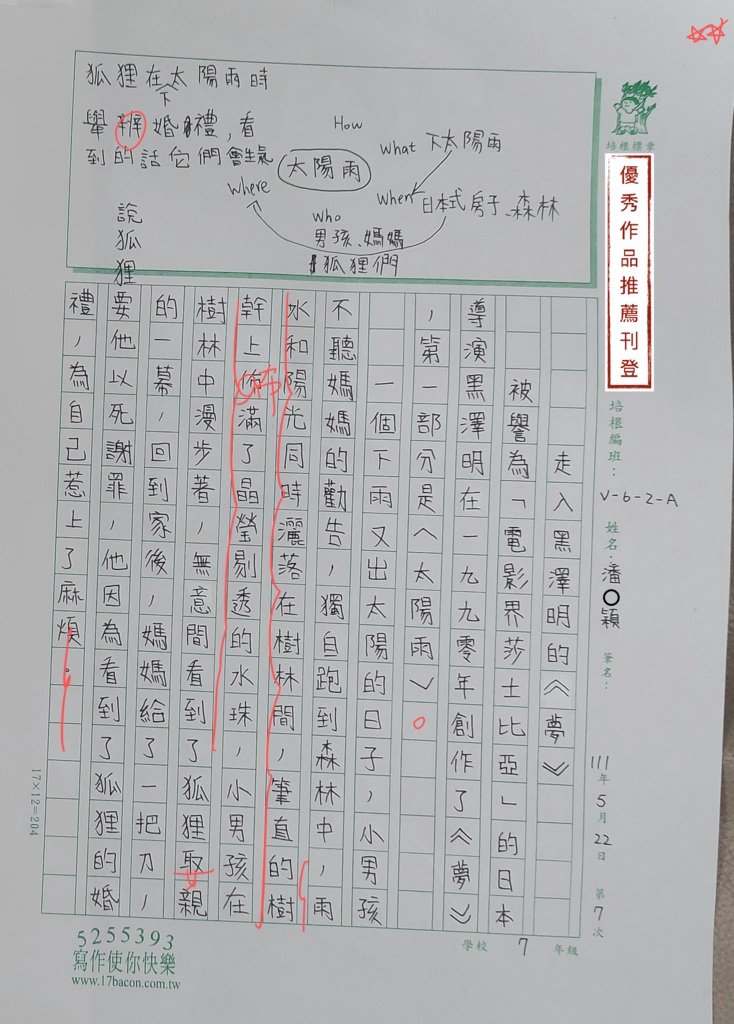 狐狸在太陽雨時
下
舉辦婚禮，看
到的話它們會生氣
說狐狸
How
what 下太陽雨
太陽雨
where
when 日本式房子、森林
who
男孩、媽媽
狐狸們
培根樓章
優秀作品推薦刊登
培根編班：V-6-2-A 姓名：潘〇穎 筆名：
111年5月22日 第7次
走入黑澤明的《夢》
被譽為「電影界莎士比亞」的日本
導演黑澤明在一九九零年創作了《夢》
，第一部分是〈太陽雨〉。
一個下雨又出太陽的日子，小男孩
不聽媽媽的勸告，獨自跑到森林中，雨
水和陽光同時灑落在樹林間，筆直的樹
幹上佈滿了晶瑩剔透的水珠，小男孩在
樹林中漫步著，無意間看到了狐狸取親
的一幕，回到家後，媽媽給了一把刀，
要他以死謝罪，他因為看到了狐狸的婚
禮，為自己惹上了麻煩。
17×12=204
學校 7 年級
5255393
寫作使你快樂
www.17bacon.com.tw